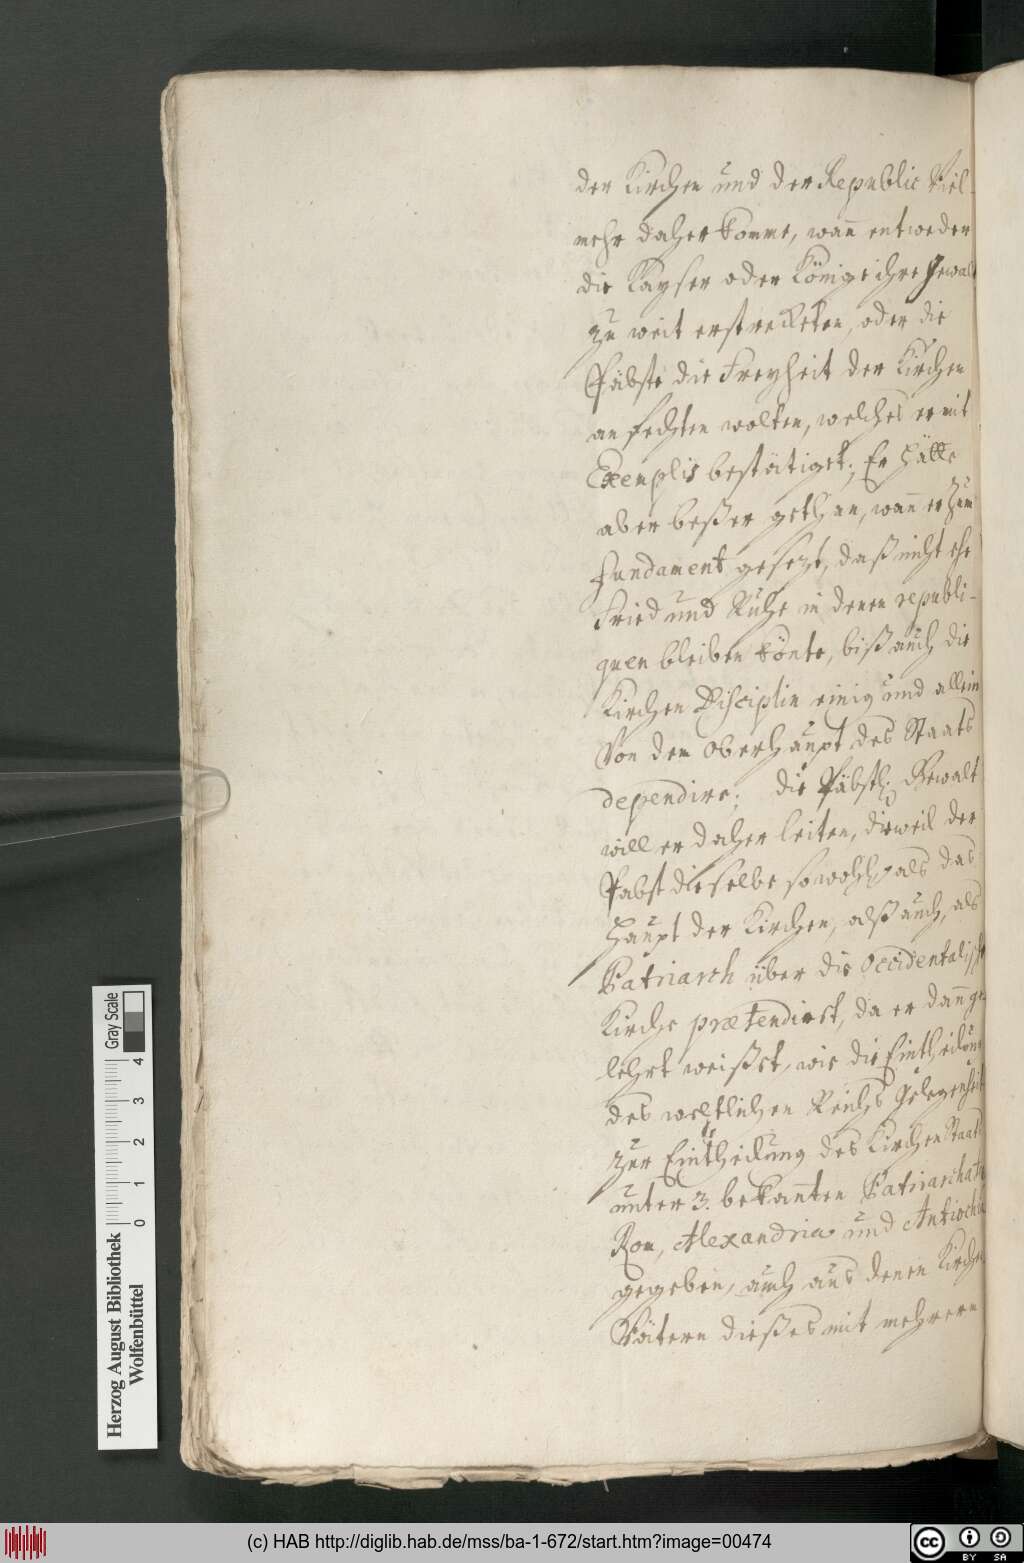 der Kirchen und der Republic Viel-
mehr daher komme, wan̄ entweder
die Kayser oder Könige ihre Gewalt
zu weit erstrecketen, oder die
Päbste die Freyheit der Kirchen
anfechten wolten, welches er mit
Exemplis bestätiget; Er hätte
aber beßer gethan, wan̄ er zum
Fundament gesezt, daß nicht ehe
Fried und Ruhe in denen republi-
quen bleiben könte, biß auch die
Kirchen Disciplin einig und allein
Von dem Oberhaupt des Staats
dependire; die Päbstl. Gewalt
will er daher leiten, dieweil der
Pabst dieselbe sowohl als das
Haupt der Kirchen, alß auch, als
Patriarch über die Occidentalische
Kirche prætendiret, da er dan̄ ge-
lehrt weißet, wie die Eintheilung
des weltlichen Reichs Gelegenheit
zur Eintheilung des Kirchen Staats
unter 3. bekan̄ten Patriarchaten
Rom, Alexandria und Antiochia
gegeben, auch aus denen Kirchen
Vätern dießes mit mehrern
Herzog August Bibliothek
Wolfenbüttel
Gray Scale
0 1 2 3 4
(c) HAB http://diglib.hab.de/mss/ba-1-672/start.htm?image=00474
cc BY SA